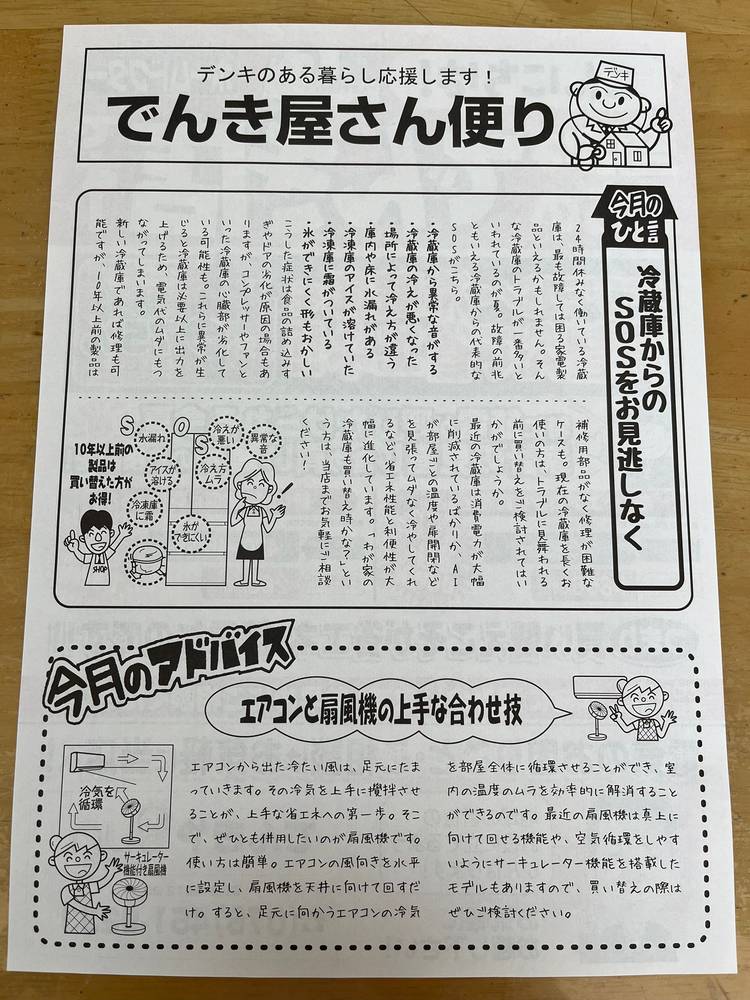 デンキのある暮らし応援します！
でんき屋さん便り
デンキ
今月の
ひと言
冷蔵庫からの
SOSをお見逃しなく
24時間休みなく働いている冷蔵
庫は、最も故障しては困る家電製
品といえるかもしれません。そん
な冷蔵庫のトラブルが一番多いと
いわれているのが夏。故障の前兆
ともいえる冷蔵庫からの代表的な
SOSがこちら。
・冷蔵庫から異常な音がする
・冷蔵庫の冷えが悪くなった
・場所によって冷え方が違う
・庫内や床に水漏れがある
・冷凍庫のアイスが溶けていた
・冷凍庫に霜がついている
・氷ができにくく形もおかしい
こうした症状は食品の詰め込みす
ぎやドアの劣化が原因の場合もあ
りますが、コンプレッサーやファンと
いった冷蔵庫の心臓部が劣化して
いる可能性も。これらに異常が生
じると冷蔵庫は必要以上に出力を
上げるため、電気代のムダにもつ
ながってしまいます。
新しい冷蔵庫であれば修理も可
能ですが、10年以上前の製品は
補修用部品がなく修理が困難な
ケースも。現在の冷蔵庫を長くお
使いの方は、トラブルに見舞われる
前に買い替えをご検討されてはい
かがでしょうか。
最近の冷蔵庫は消費電力が大幅
に削減されているばかりか、AI
が部屋ごとの温度や扉開閉など
を見張ってムダなく冷やしてくれ
るなど、省エネ性能と利便性が大
幅に進化しています。「わが家の
冷蔵庫も買い替え時かな？」とい
う方は、当店までお気軽にご相談
ください！
SOS
異常な
音
冷えが
悪い
水漏れ
冷え方
ムラ
アイスが
溶ける
冷凍庫
に霜
氷が
できにくい
10年以上前の
製品は
買い替えた方が
お得！
SHOP
今月のアドバイス
エアコンと扇風機の上手な合わせ技
冷気を
循環
サーキュレーター
機能付き扇風機
エアコンから出た冷たい風は、足元にたま
っていきます。その冷気を上手に攪拌させ
ることが、上手な省エネへの第一歩。そこ
で、ぜひとも併用したいのが扇風機です。
使い方は簡単。エアコンの風向きを水平
に設定し、扇風機を天井に向けて回すだ
け。すると、足元に向かうエアコンの冷気
を部屋全体に循環させることができ、室
内の温度のムラを効率的に解消すること
ができるのです。最近の扇風機は真上に
向けて回せる機能や、空気循環をしやす
いようにサーキュレーター機能を搭載した
モデルもありますので、買い替えの際は
ぜひご検討ください。